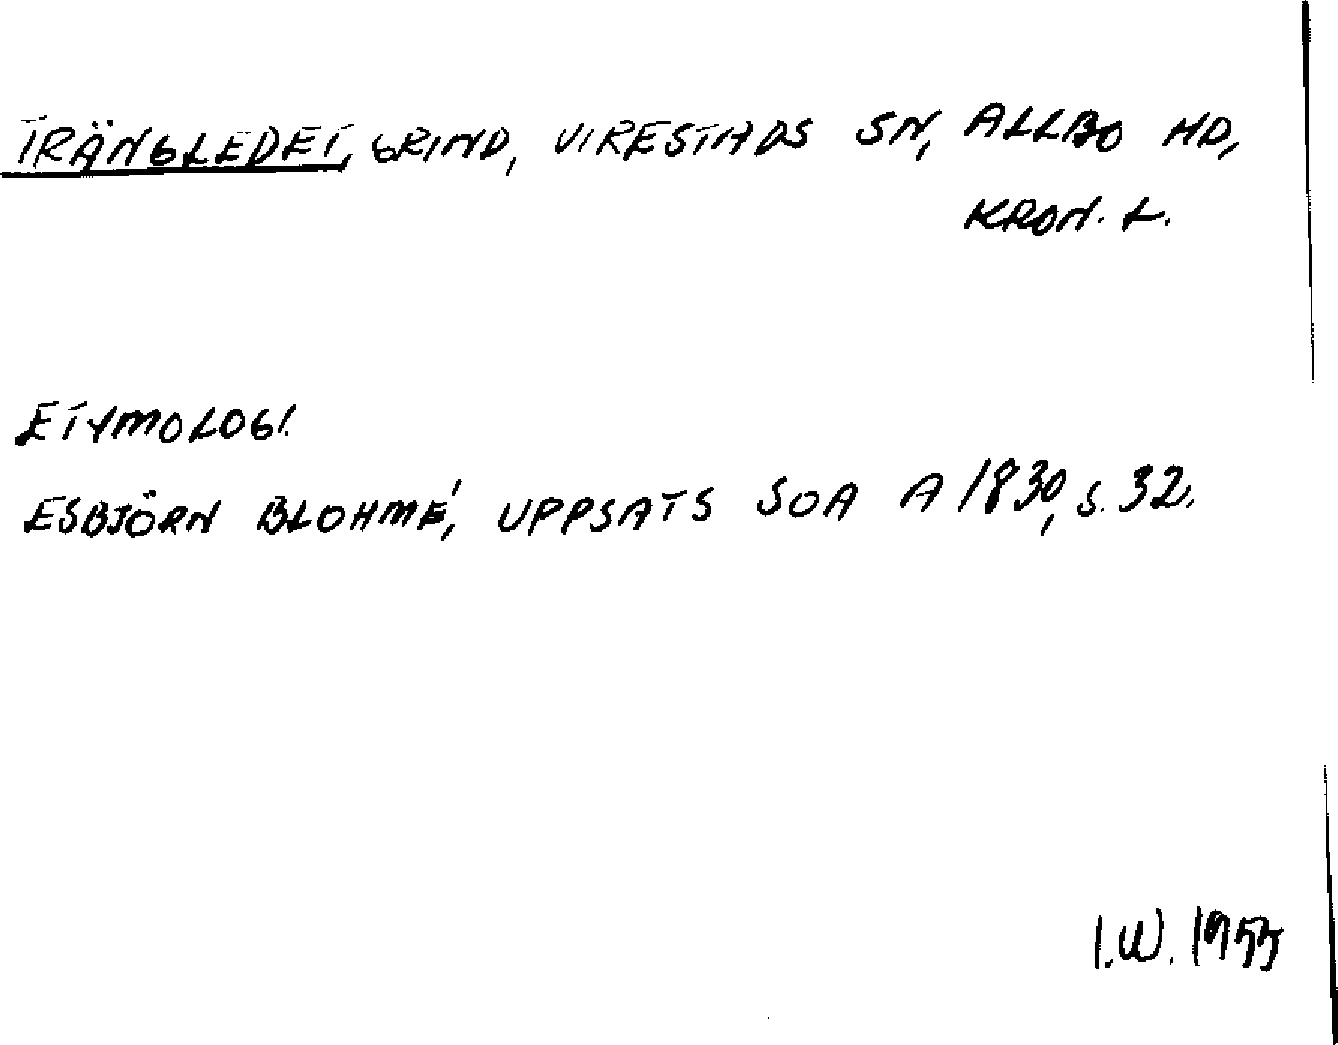 TRÄNGLEDET, GRIND, VIRESTADS SN, ALLBO HD,
KRON. L.
ETYMOLOGI.
ESBJÖRN BLOHMÉ, UPPSATS SOA A 1830, S. 32.
I.W.